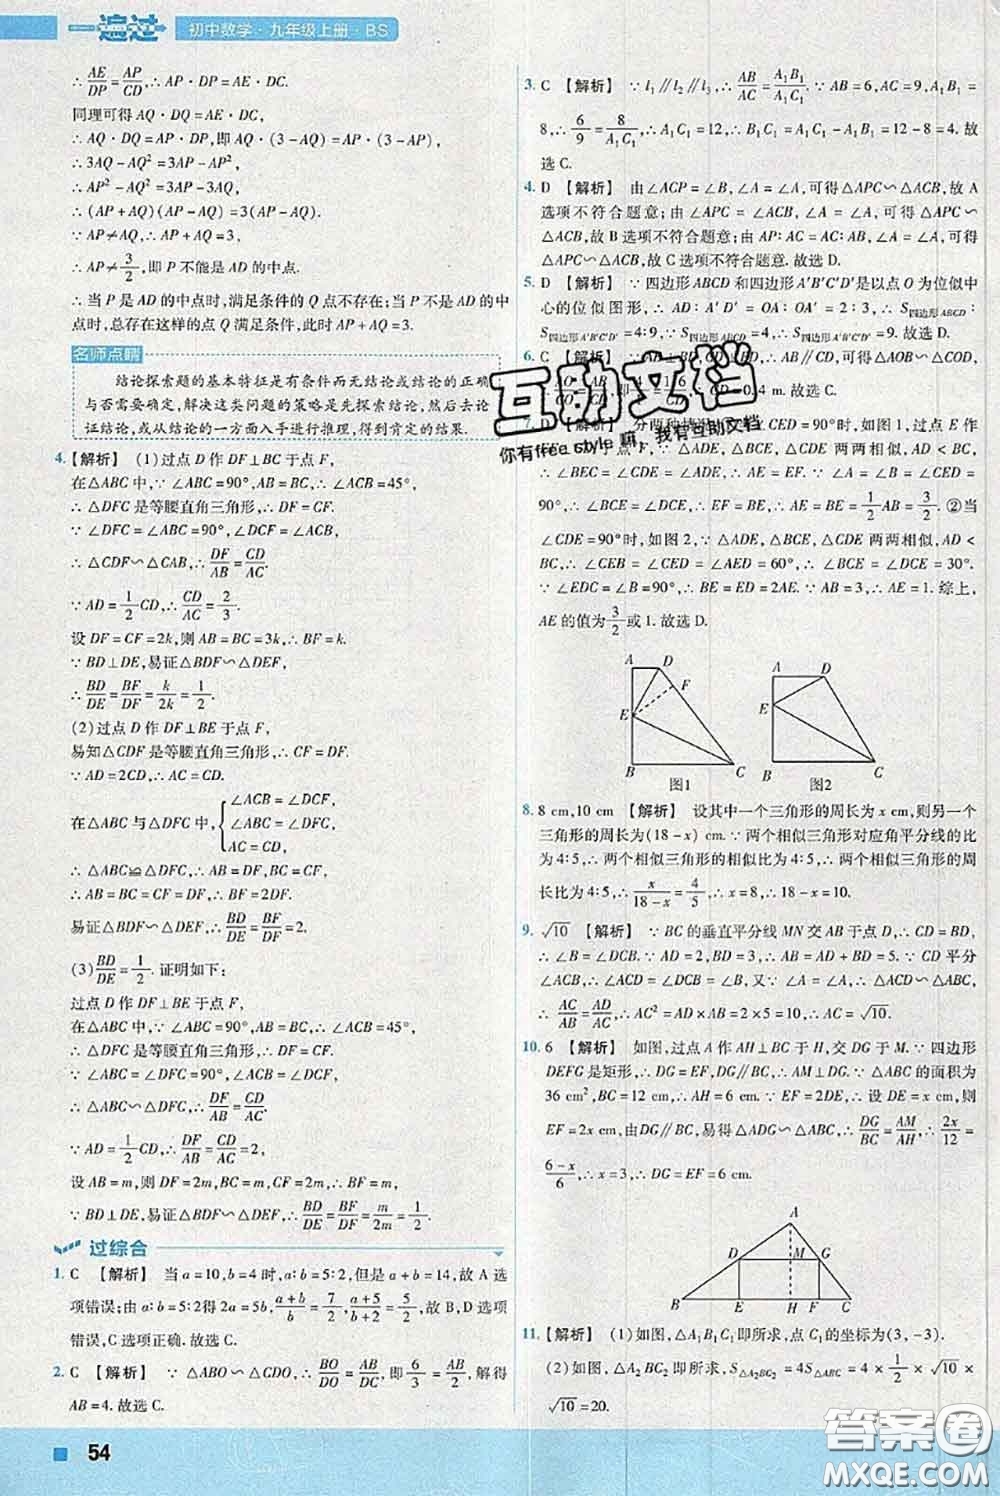 一遍过 初中数学·九年级上册·BS
∴ AE/PD = AP/CD, ∴ AP·DP = AE·DC.
同理可得 AQ·DQ = AE·DC,
∴ AQ·DQ = AP·DP, 即 AQ·(3 - AQ) = AP·(3 - AP),
∴ 3AQ - AQ² = 3AP - AP²,
∴ AP² - AQ² = 3AP - 3AQ,
∴ (AP + AQ)(AP - AQ) = 3(AP - AQ).
∵ AP ≠ AQ, ∴ AP + AQ = 3,
∴ AP ≠ 3/2, 即 P 不能是 AD 的中点.
∴ 当 P 是 AD 的中点时,满足条件的 Q 点不存在;当 P 不是 AD 的中
点时,总存在这样的点 Q 满足条件,此时 AP + AQ = 3.
名师点睛
结论探索题的基本特征是有条件而无结论或结论的正确
与否需要确定,解决这类问题的策略是先探索结论,然后去论
证结论,或从结论的一方面入手进行推理,得到肯定的结果.
4. 【解析】 (1)过点 D 作 DF⊥BC 于点 F,
在△ABC 中, ∵ ∠ABC = 90°, AB = BC, ∴ ∠ACB = 45°,
∴ △DFC 是等腰直角三角形, ∴ DF = CF.
∵ ∠DFC = ∠ABC = 90°, ∠DCF = ∠ACB,
∴ △CDF∽△CAB, ∴ DF/AB = CD/AC.
∵ AD = 1/2 CD, ∴ CD/AC = 2/3.
设 DF = CF = 2k, 则 AB = BC = 3k, ∴ BF = k.
∵ BD⊥DE, 易证△BDF∽△DEF,
∴ BD/DE = BF/DF = k/2k = 1/2.
(2)过点 D 作 DF⊥BE 于点 F,
易知△CDF 是等腰直角三角形, ∴ CF = DF.
∵ AD = 2CD, ∴ AC = CD.
∠ACB = ∠DCF,
在△ABC 与△DFC 中, ∠ABC = ∠DFC,
AC = CD,
∴ △ABC≌△DFC, ∴ AB = DF, BC = CF,
∴ AB = BC = CF = DF, ∴ BF = 2DF.
易证△BDF∽△DEF, ∴ BD/DE = BF/DF = 2.
(3) BD/DE = 1/2. 证明如下:
过点 D 作 DF⊥BC 于点 F,
在△ABC 中, ∵ ∠ABC = 90°, AB = BC, ∴ ∠ACB = 45°,
∴ △DFC 是等腰直角三角形, ∴ DF = CF.
∵ ∠DFC = ∠ABC = 90°, ∠DCF = ∠ACB,
∴ △CDF∽△CAB, ∴ DF/AB = CD/AC.
∵ AD = 1/2 CD, ∴ DF/AB = CD/AC = 2.
设 AB = m, 则 DF = 2m, BC = m, CF = 2m,
∵ BD⊥DE, 易证△BDF∽△DEF, ∴ BD/DE = BF/DF = m/2m = 1/2.
过综合
1. C 【解析】 当 a = 10, b = 4 时, a∶b = 5∶2, 但是 a + b = 14, 故 A 选
项错误;由 a∶b = 5∶2 得 2a = 5b, (a+b)/b = 7/2, (a+5)/(b+2) = 5/2, 故 B,D 选项
错误,C 选项正确. 故选 C.
2. C 【解析】 ∵ △ABO∽△CDO, ∴ BO/DO = AB/DC, 即 6/3 = AB/2, ∴
AB = 4. 故选 C.
3. C 【解析】 ∵ l₁∥l₂∥l₃, ∴ AB/AC = A₁B₁/A₁C₁. ∵ AB = 6, AC = 9, A₁B₁ =
8, ∴ 6/9 = 8/A₁C₁, ∴ A₁C₁ = 12, ∴ B₁C₁ = A₁C₁ - A₁B₁ = 12 - 8 = 4. 故
选 C.
4. D 【解析】 由 ∠ACP = ∠B, ∠A = ∠A, 可得△APC∽△ACB, 故 A
选项不符合题意;由 ∠APC = ∠ACB, ∠A = ∠A, 可得 △APC∽
△ACB, 故 B 选项不符合题意;由 AP∶AC = AC∶AB, ∠A = ∠A, 可得
△APC∽△ACB, 故 C 选项不符合题意. 故选 D.
5. D 【解析】 ∵ 四边形 ABCD 和四边形 A′B′C′D′ 是以点 O 为位似中
心的位似图形, ∴ AD∶A′D′ = OA∶OA′ = 2∶3, ∴ S四边形ABCD∶
S四边形A′B′C′D′ = 4∶9. ∵ S四边形ABCD = 4, ∴ S四边形A′B′C′D′ = 9. 故选 D.
6. C 【解析】 ∵ AB⊥BD, CD⊥BD, ∴ AB∥CD, 可得△AOB∽△COD,
∴ AO/CO = AB/CD, 即 4/1 = 1.6/CD, ∴ CD = 0.4 m. 故选 C.
7. D 【解析】 分两种情况: ①当∠CED = 90°时, 如图 1, 过点 E 作
EF⊥CD 于点 F, ∵ △ADE, △BCE, △CDE 两两相似, AD < BC,
∴ ∠ADE = ∠EDC, ∴ AE = EF. ∵ ∠A = ∠B = ∠CED =
90°, ∴ ∠BCE = ∠DCE, ∴ EF = BE, ∴ AE = BE = 1/2 AB = 3/2. ②当
∠CDE = 90°时, 如图 2, ∵ △ADE, △BCE, △CDE 两两相似, AD <
BC, ∴ ∠CEB = ∠CED = ∠AED = 60°, ∴ ∠BCE = ∠DCE = 30°.
∵ ∠EDC = ∠B = 90°, ∴ BE = ED = 2AE. ∵ AB = 3, ∴ AE = 1. 综上,
AE 的值为 3/2 或 1. 故选 D.
A D F E B C 图1
A D E B C 图2
8. 8 cm, 10 cm 【解析】 设其中一个三角形的周长为 x cm, 则另一个
三角形的周长为(18 - x) cm. ∵ 两个相似三角形对应角平分线的比
为 4∶5, ∴ 两个相似三角形的相似比为 4∶5, ∴ 两个相似三角形的周
长比为 4∶5, ∴ x/(18-x) = 4/5, ∴ x = 8, ∴ 18 - x = 10.
9. √10 【解析】 ∵ BC 的垂直平分线 MN 交 AB 于点 D, ∴ CD = BD,
∴ ∠B = ∠DCB. ∵ AD = 2, BD = 3, ∴ AB = AD + BD = 5. ∵ CD 平分
∠ACB, ∴ ∠ACD = ∠DCB = ∠B, 又∵ ∠A = ∠A, ∴ △ACD∽△ABC,
∴ AC/AB = AD/AC, ∴ AC² = AD×AB = 2×5 = 10, ∴ AC = √10.
10. 6 【解析】 如图, 过点 A 作 AH⊥BC 于 H, 交 DG 于 M. ∵ 四边形
DEFG 是矩形, ∴ DG = EF, DG∥BC, ∴ AM⊥DG. ∵ △ABC 的面积为
36 cm², BC = 12 cm, ∴ AH = 6 cm. ∵ EF = 2DE, ∴ 设 DE = x cm, 则
EF = 2x cm, 由 DG∥BC, 易得△ADG∽△ABC, ∴ DG/BC = AM/AH, ∴ 2x/12 =
(6-x)/6, ∴ x = 3, ∴ DG = EF = 6 cm.
A D M G B E H F C
11. 【解析】 (1)如图, △A₁B₁C₁ 即所求, 点 C₁ 的坐标为(3, -3).
(2)如图, △A₂BC₂ 即所求, S△A₂BC₂ = 4S△ABC = 4 × 1/2 × √10 ×
√10 = 20.
互助文档
你有free style 嘛,我有互助文档
答案圈
MXQE.COM
54